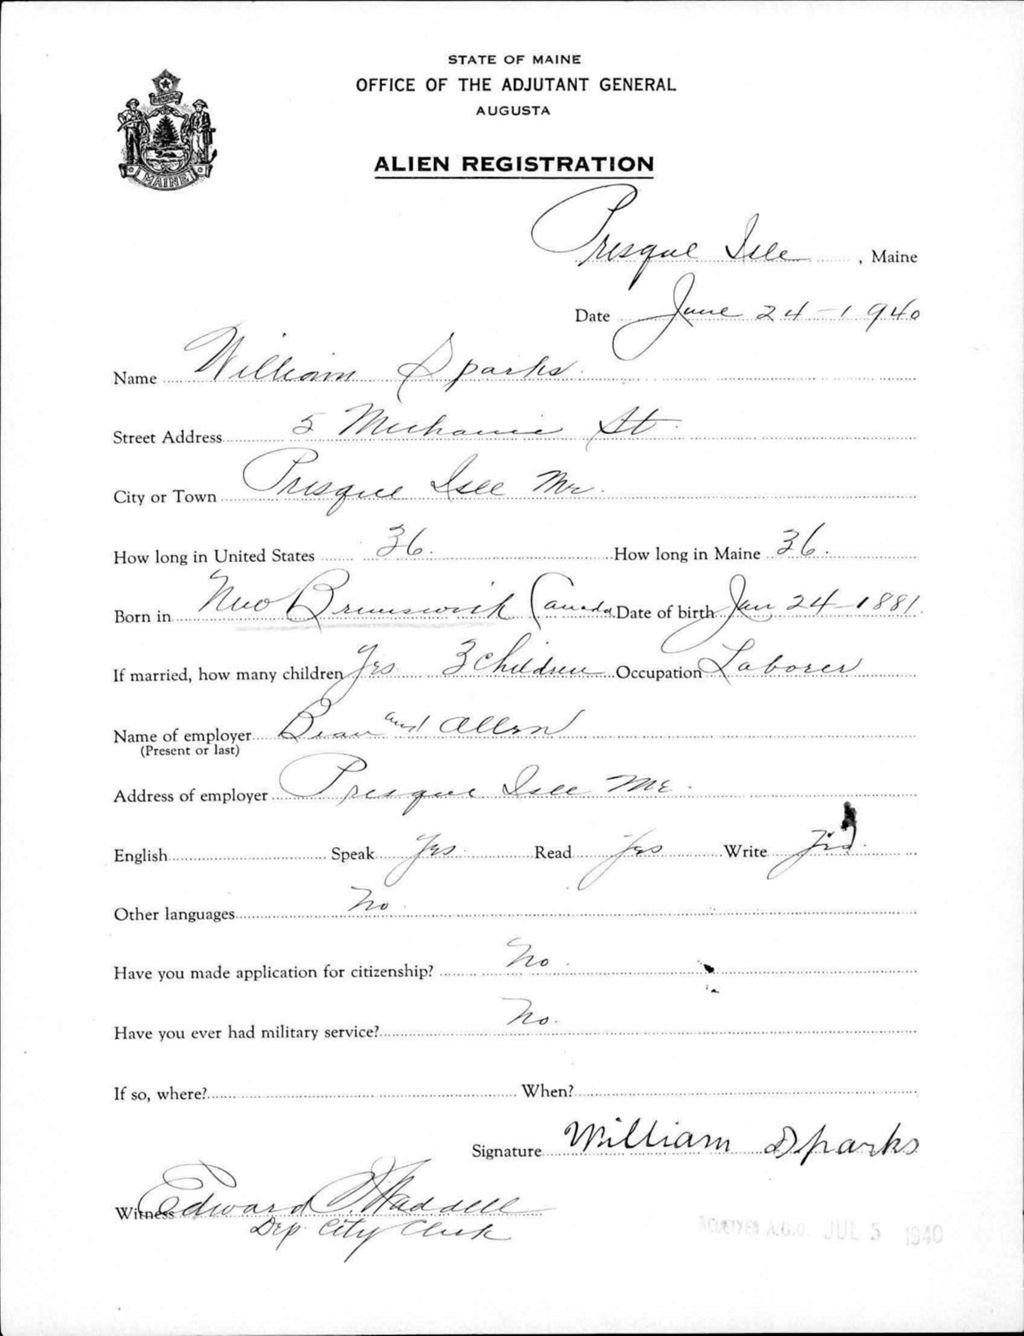 STATE OF MAINE
OFFICE OF THE ADJUTANT GENERAL
AUGUSTA
ALIEN REGISTRATION
MAINE
Presque Isle, Maine
Date June 24-1940
Name William Sparks
Street Address 5 Mechanic St.
City or Town Presque Isle Me.
How long in United States 36. How long in Maine 36.
Born in New Brunswick Canada Date of birth Jan 24-1881.
If married, how many children Yes 3 children Occupation Laborer
Name of employer and Allen
(Present or last)
Address of employer Presque Isle Me.
English Speak Yes Read Yes Write Yes
Other languages No
Have you made application for citizenship? No.
Have you ever had military service? No.
If so, where? When?
Signature William Sparks
Witness Edward Waddell
Dep City Clerk
A.G.O. JUL 5 1940